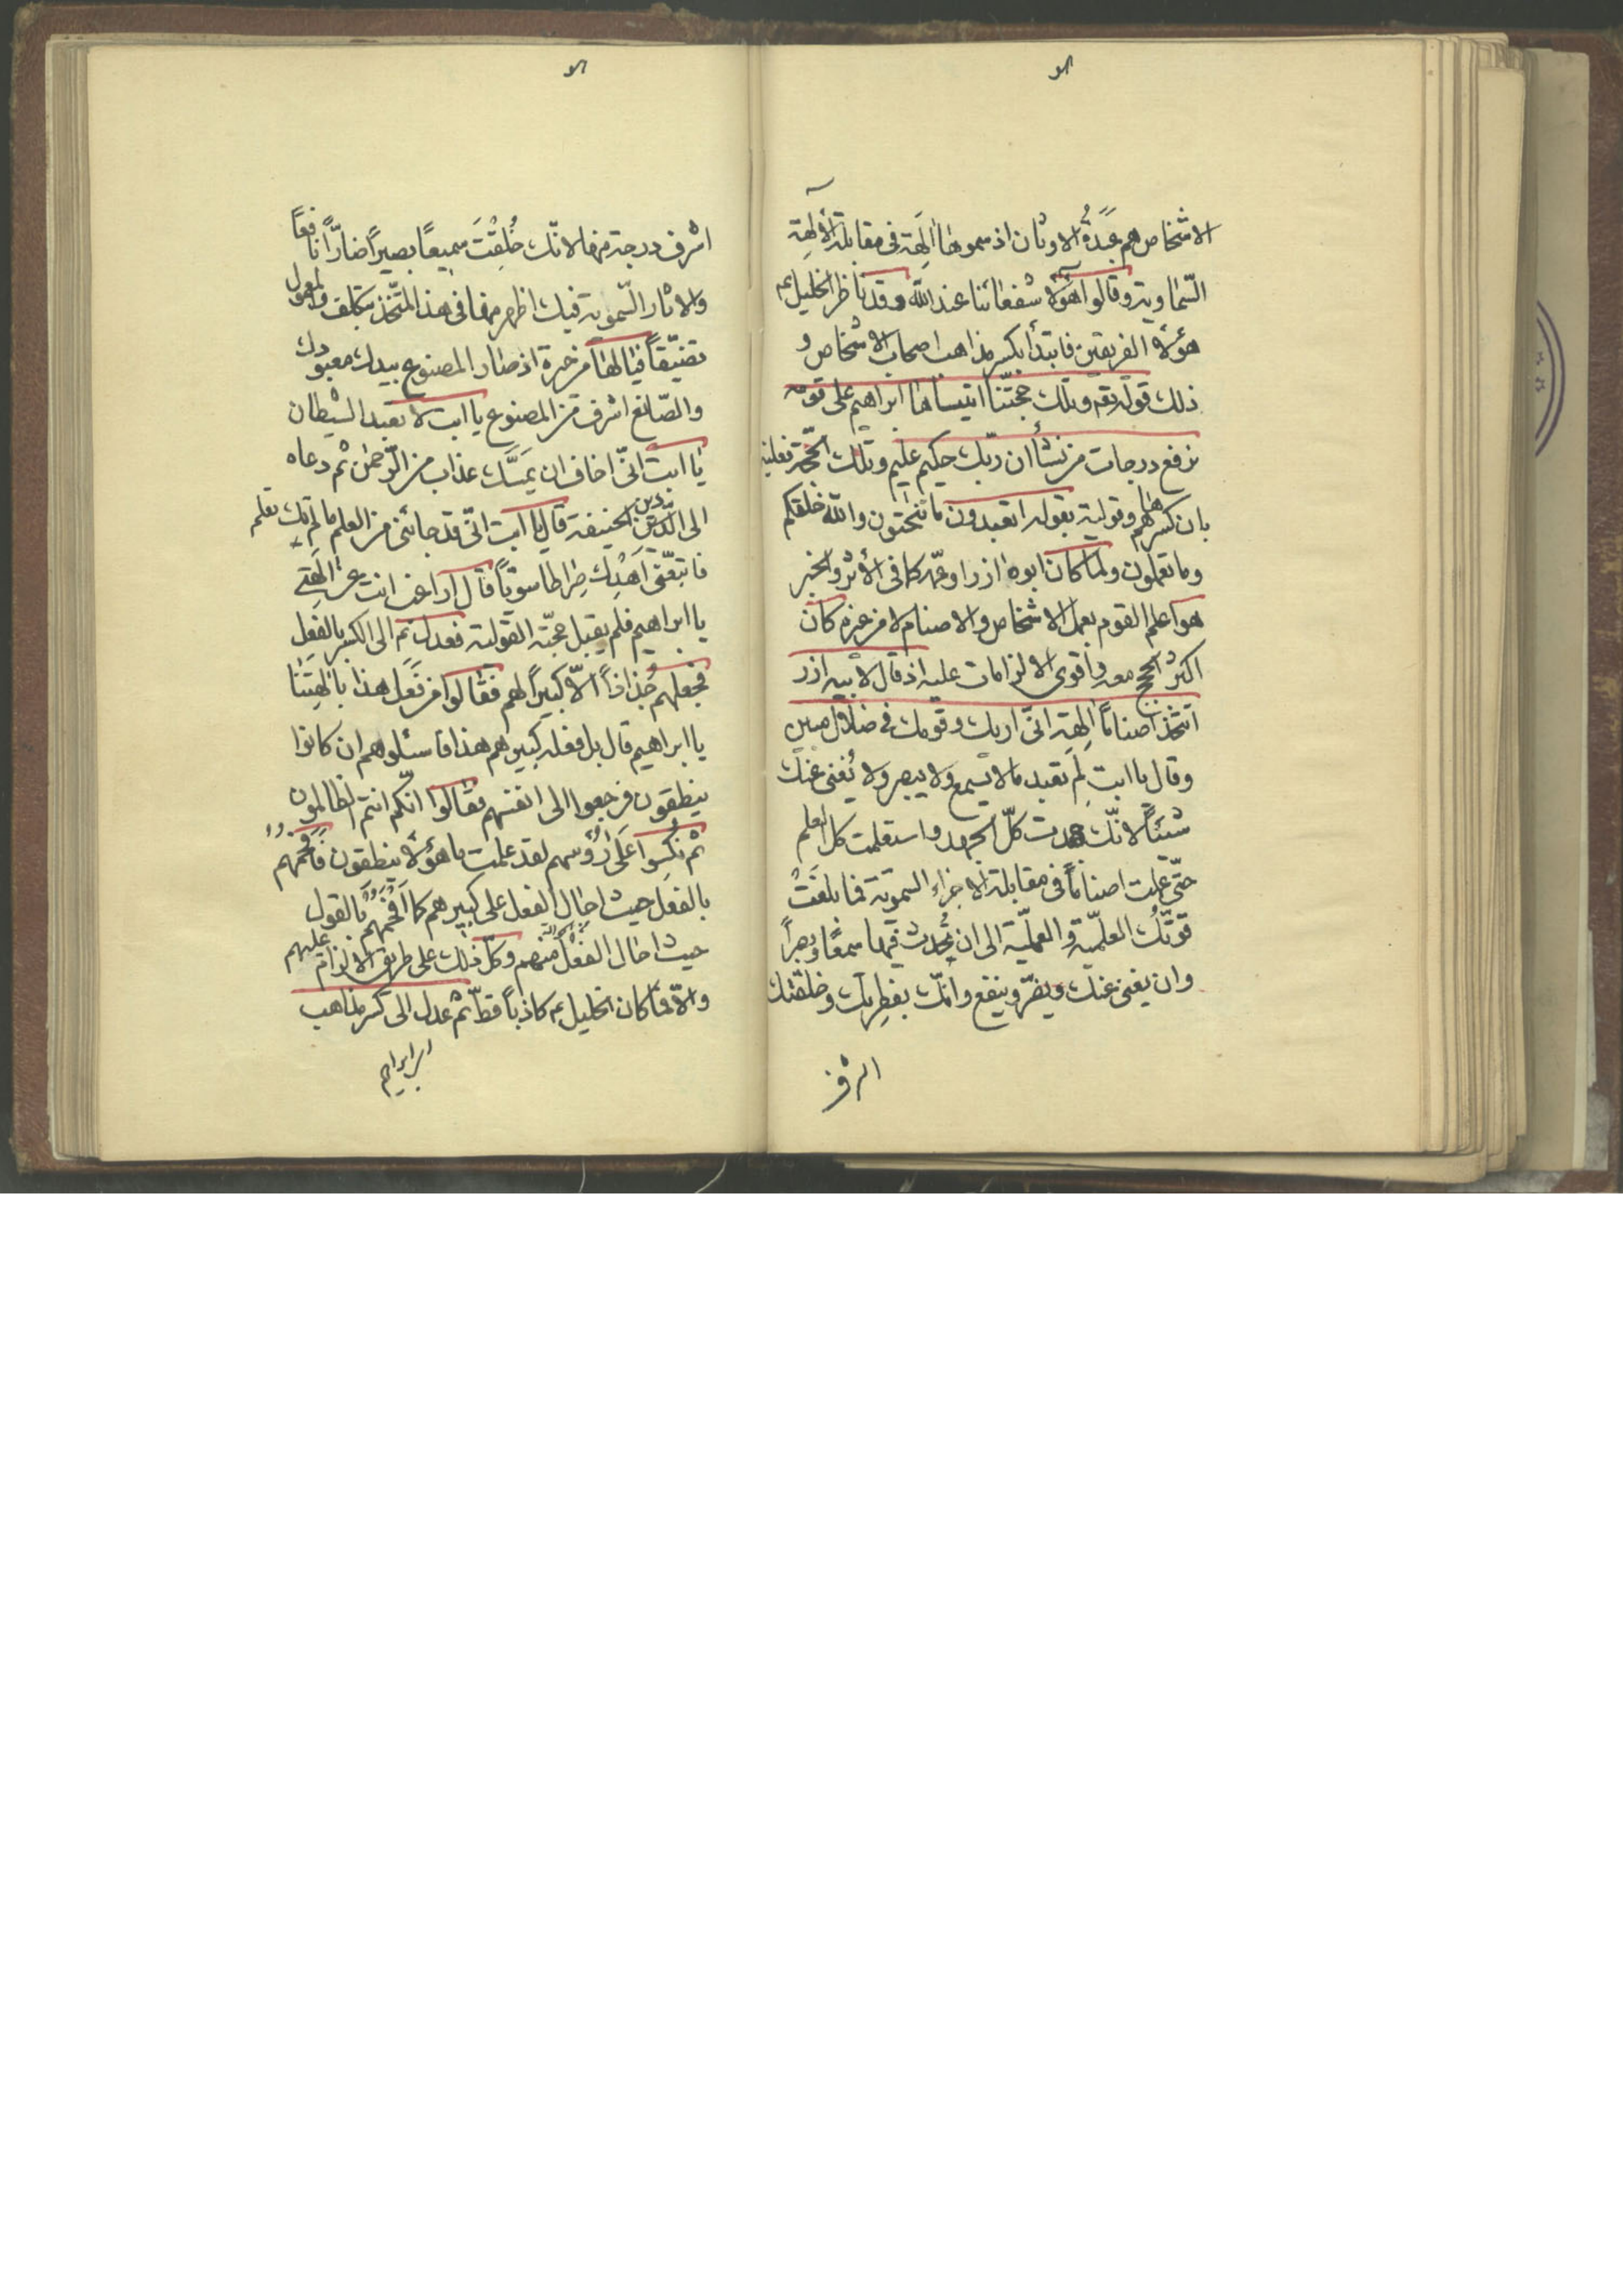 الاشخاص هم عَبَدَةُ الاوثان اذ سموها الِهَة فى مقابلة الألِهَة
السّماوية وقالوا هؤلا شفعائنا عند اللّه وقد ناظر الخليل ع‍م
هؤلاء الفريقين فابتدأ بكسر مذاهب اصحاب الاشخاص و
ذلك قوله تع‍ه وتلك حجّتنا اتيناها ابراهيم على قومه
نرفع درجات من نشأ ان ربّك حكيم عليم وتلك الحجّة فعلية
بان كسرهم وقولية بقوله اتعبدون ما تنحتون واللّه خلقكم
وما تعملون ولما كان ابوه ازر اوعمّه كما فى الأثر والخبر
هو اعلم القوم بعمل الاشخاص والاصنام لا من غيره كان
اكثرُ الحجج معه واقوى الالزامات عليه اذ قال لابيه ازر
اتتّخذ اصناماً الِهَة انّى اريك وقومك فى ضلال مبين
وقال يا ابتِ لِمَ تعبد ما لا تسمع ولا يبصر ولا يُغنى عنك
شيئاً لانّك جهدت كلّ الجهد واستعلمت كل العلم
حتّى عملت اصناماً فى مقابلة الاجزاء السموية فما بلغَتْ
قوّتُك العلميّة و العمليّة الى ان تُحدث فيها سمعًا وبصراً
وان يغنى عنك ويضرّ وينفع وانّك بفطرتك وخلقتك
اشرف
اشرف درجة منها لانّك خُلِقْتَ سميعًا بصيراً ضارّاً نافعاً
والاثار السّموية فيك اظهر منها فى هذا المتّخذ تكلّفا والمعمول
تصنّعاً فيا لها من حيرة اذ صار المصنوع بيدك معبودك
والصّانع اشرف من المصنوع يا ابت لا تعبد الشيطان
يا ابت انّى اخاف ان يَمَسَّك عذاب من الرّحمٰن ثم دعاه
الى الدّين الحنيفة قال يا ابت انّى قد جائنى من العلم ما لم يأتك تعلم
فاتبعنى اَهْدِك صِراطا سويّاً قال اراغب انت عن الِهَتى
يا ابراهيم فلم يقبل حجّته القولية فعدل ثم الى الكسر بالفعل
فجعلهم جُذاذاً الاّ كبيراً لهم فقالوا من فَعَلَ هذا بالِهَتِنا
يا ابراهيم قال بل فعله كبيرهم هذا فاسئلوهم ان كانوا
ينطقون فرجعوا الى انفسهم فقالوا انّكم انتم الظالمون
ثم نُكِسُوا عَلى رُؤسهم لقد علمت ما هؤلاء ينطقون فَاَفحَمَهم
بالفعل حيث احال الفعل على كبيرهم كما اَفْحَمَهُم بالقول
حيث احال الفعل منهم وكلّ ذلك على طريق الالزام عليهم
والاّ فما كان الخليل ع‍م كاذباً قطّ ثم عدل الى كسر مذاهب